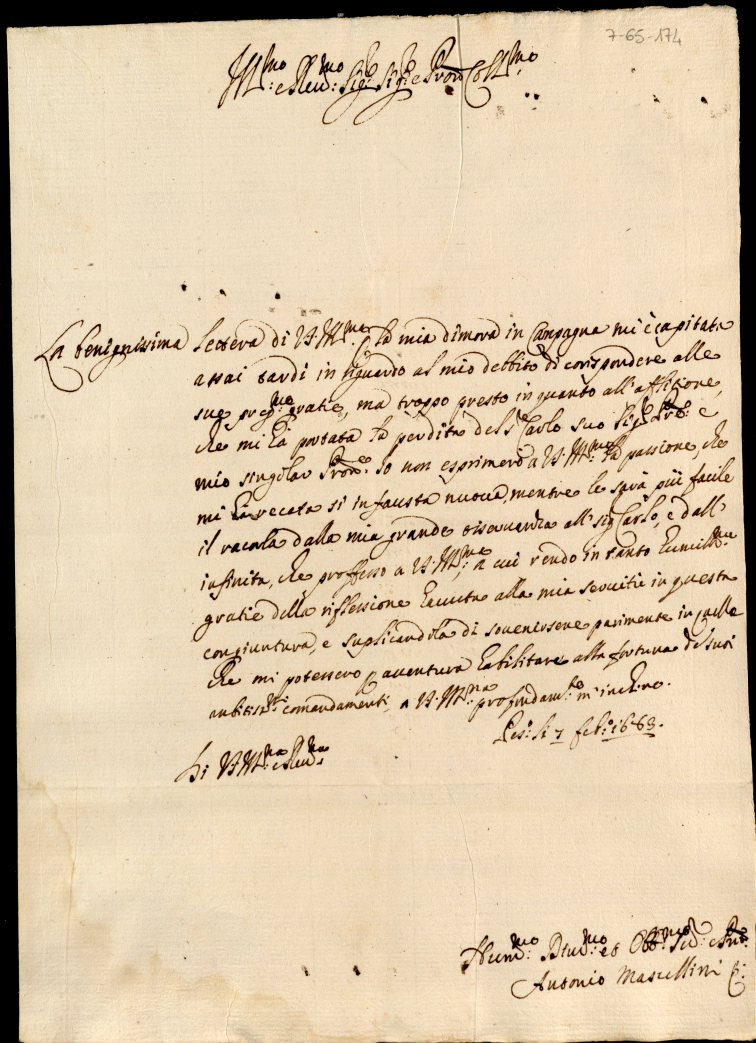 7-65-174
Ill.mo e Reu.mo Sig.r Sig.r e Pron Coll.mo
La benignissima lettera di V.S. Ill.ma p la mia dimora in Campagna mi è capitata
assai tardi in riguardo al mio debbito di corispondere alle
sue preg.me gratie, ma troppo presto in quanto all'afflitione,
che mi hà portata la perdita del s.r Carlo suo Sig.r e
mio singolar Pron.e Io non esprimerò a V.S. Ill.ma la passione, che
mi hà recata si infausta nuoua, mentre le sarà più facile
il racorla dalla mia grande osseruanza all' sig.r Carlo, e dall'
infinita, che proffesso a V.S. Ill.ma, a cui rendo in tanto humill.me
gratie della riflessione hauuta alla mia seruitù in questa
congiuntura, e suplicandola di souenirsene parimente in quelle
che mi potessero p auentura habilitare alla fortuna de suoi
ambitiss.mi comandamenti, a V.S. Ill.ma profondam.te m'inchino.
Pes.o li 7 feb.o 1663.
Di V.S. Ill.ma e Reu.ma
Hum.mo Diu.mo et Obb.mo Ser.
Antonio Mascellini